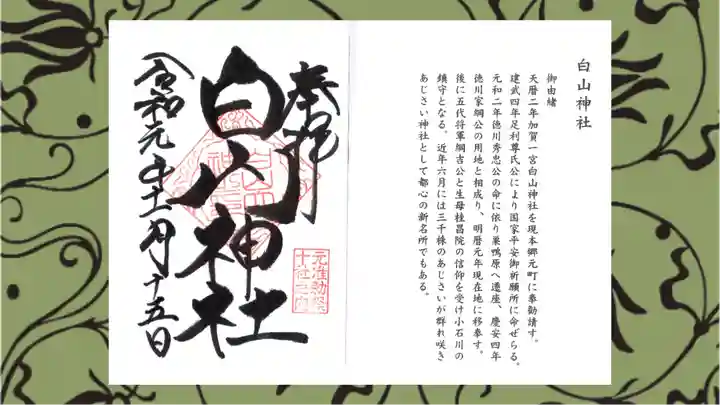 白山神社
御由緒
天暦二年加賀一宮白山神社を現本郷元町に奉勧請す。
建武四年足利尊氏公により国家平安御祈願所に命ぜらる。
元和二年徳川秀忠公の命に依り巣鴨原へ遷座、慶安四年
徳川家綱公の用地と相成り、明暦元年現在地に移奉す。
後に五代将軍綱吉公と生母桂昌院の信仰を受け小石川の
鎮守となる。近年六月には三千株のあじさいが群れ咲き
あじさい神社として都心の新名所でもある。
奉拝
白山神社
元准勅祭
十社之内
令和元年十一月十五日